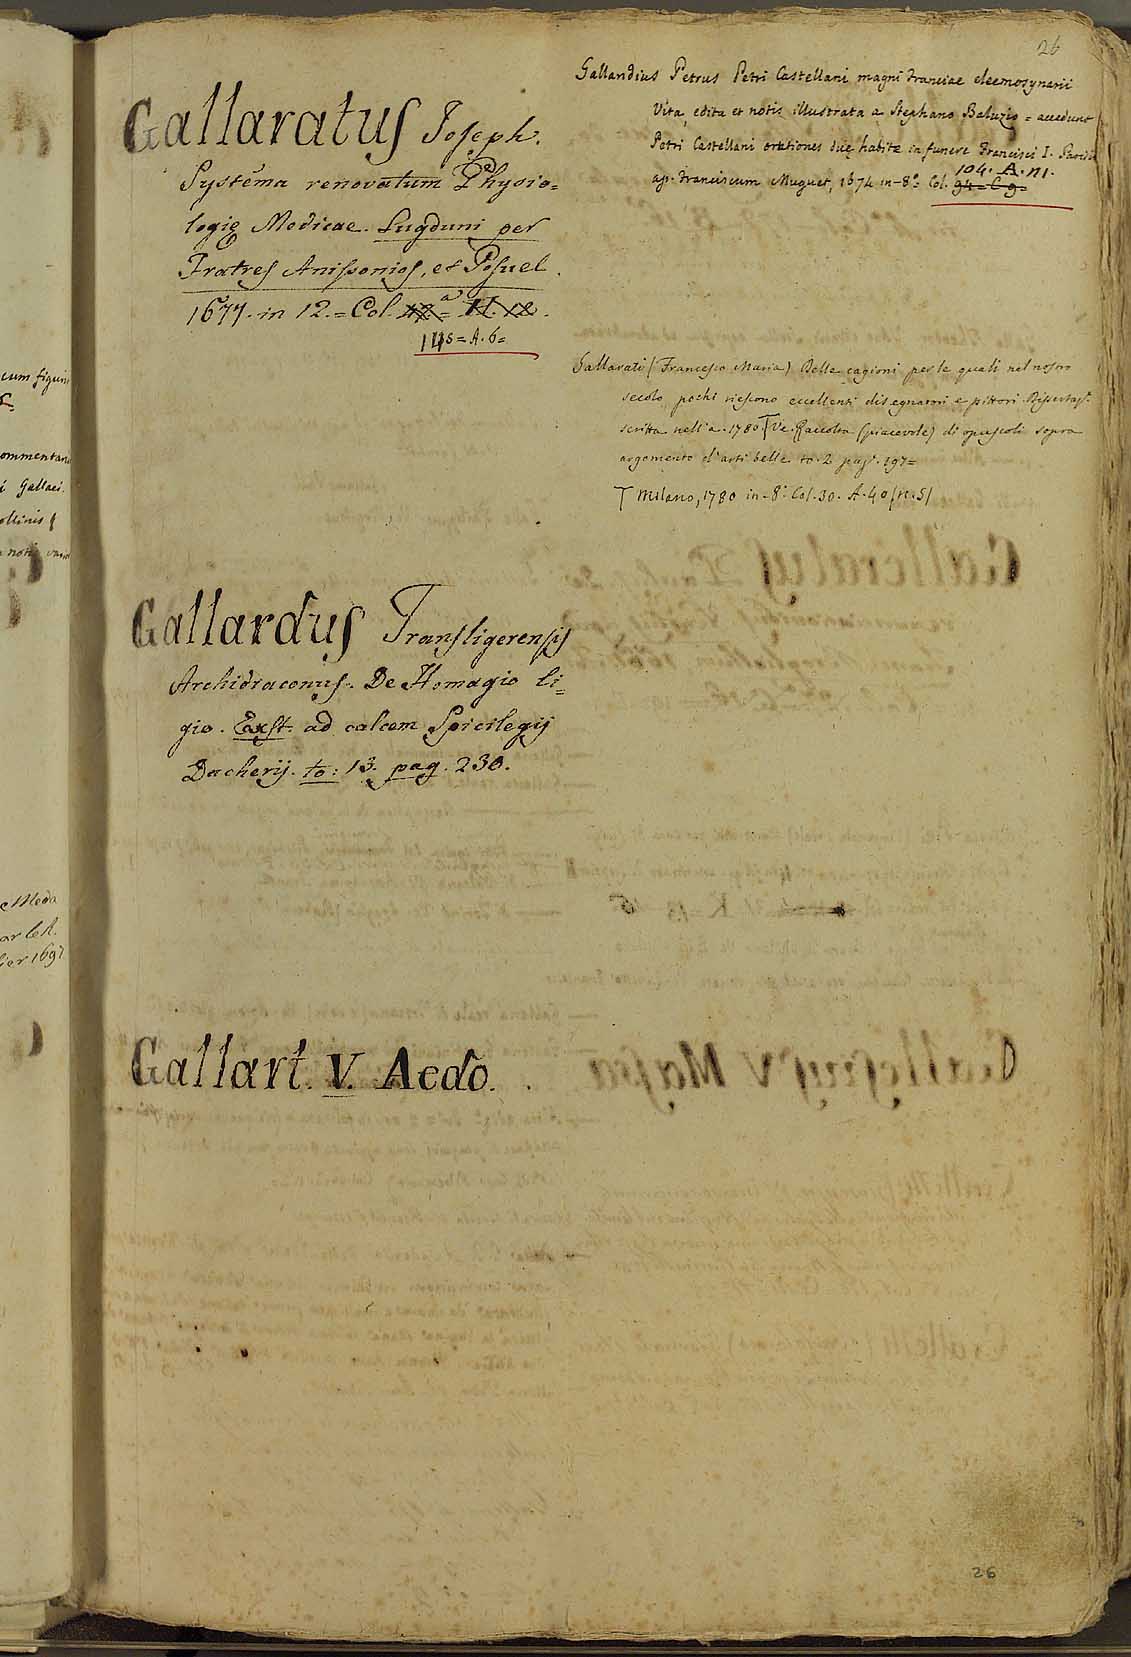 26
Gallaratus Joseph.
Systéma renovatum Physio=
logię Medicae. Lugduni per
Fratres Anissonios, et Posuel.
1677. in 12. = Col.
115 = A. 6 =
Gallardus Transligerensis
Archidiaconus. De Homagio li=
gio. Exst. ad calcem Spicilegij
Dacherij. to: 13. pag. 230.
Gallart. V. Aedo.
Gallandius Petrus Petri Castellani magni Franciae eleemosynarii
Vita, edita et notis illustrata a Stephano Baluzio = accedunt
Petri Castellani orationes duę habitę in funere Francisci I. Parisiis
104. A. n1.
ap. Franciscum Muguet, 1674 in-8º Col. 94 = C 9
Gallarati (Francesco Maria) Delle cagioni per le quali nel nostro
secolo pochi riescono eccellenti disegnatori e pittori. Dissertaz.
scritta nell'a. 1780. Ve. Raccolta (piacevole) di opuscoli sopra
argomento d'arti belle to. 2 pag. 197 =
Milano, 1780 in-8º Col. 30. A. 40 (n. 5)
26
cum figuris
i Gallaei.
ier 1697